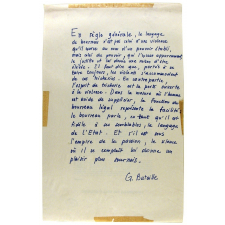 En règle générale, le langage
du bourreau n'est pas celui d'une violence
qu'il exerce au nom d'un pouvoir établi,
mais celui du pouvoir, qui l'excuse apparemment,
le justifie et lui donne une raison d'être
élevée. Et
se taire toujours, le violent s'accommodant
de sa
l'esprit de tricherie est la porte ouverte
à la violence. Dans la mesure où l'homme
est avide de supplicier, la fonction du
bourreau légal représente la facilité :
le bourreau parle,
à ses semblables, le langage
de l'Etat. Et s'il est sous
l'empire de la passion, le silence
où il se complait lui donne un
plaisir plus sournois.
G. Bataille